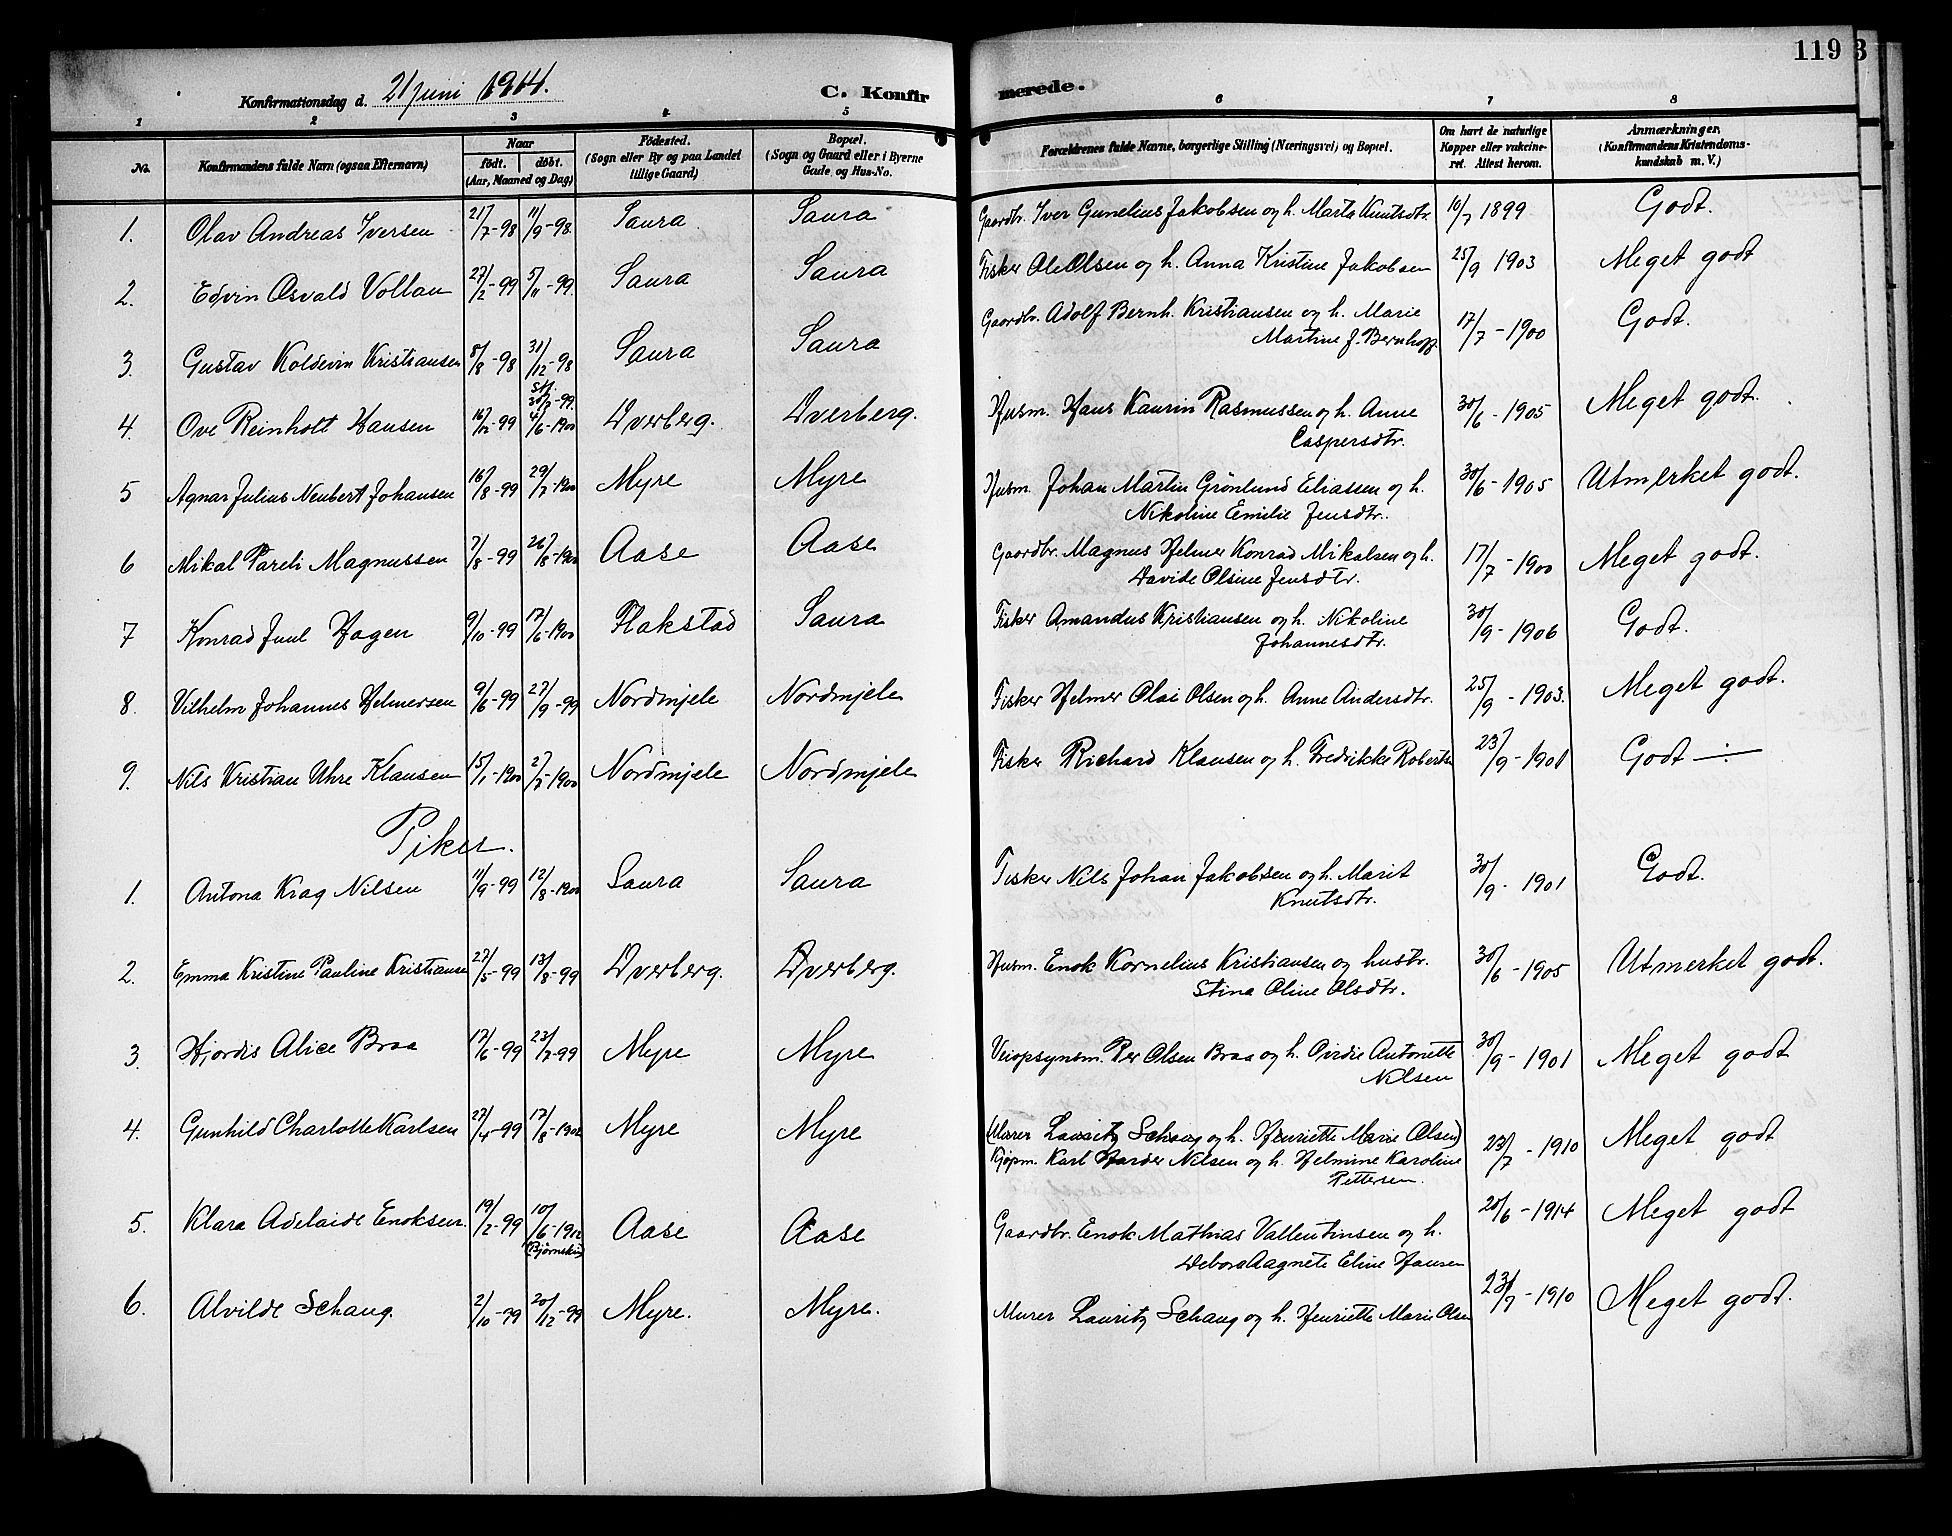 119 3
Konfirmationsdag d. 21 juni 1914. C. Konfirmerede.
1 2 3 4 5 6 7 8
No. Konfirmandens fulde Navn (ogsaa Efternavn) Naar født. døbt. (Aar, Maaned og Dag) Fødested. (Sogn eller By og paa Landet tillige Gaard) Bopæl. (Sogn og Gaard eller i Byerne Gade og Hus-No. Forældrenes fulde Navne, borgerlige Stilling (Næringsvei) og Bopæl. Om havt de naturlige Kopper eller vakcineret. Attest herom. Anmærkninger. (Konfirmandens Kristendomskundskab m. V.)
1. Olav Andreas Iversen 21/7-98 11/9-98. Saura Saura Gaardbr. Iver Gunelius Jakobsen og h. Marta Knutsdtr. 10/7 1899 Godt.
2. Edvin Osvald Vollan 27/2-99 5/11-99. Saura Saura Fisker Ole Olsen og h. Anna Kristine Jakobsen 25/9 1903 Meget godt
3. Gustav Koldevin Kristiansen 8/8-98 31/12-98 Saura Saura Gaardbr. Adolf Bernh. Kristiansen og h. Marie
Martine J. Bernhoff 17/7-1900 Godt.
4. Ove Reinholt Hansen 16/12-99 4/6-1900 Dverberg. Dverberg. Husm. Hans Kaurin Rasmussen og h. Anne
Caspersdtr. 30/6-1905 Meget godt.
5 Agnar Julius Neubert Johansen 16/8-99 29/7-1900 Myre Myre Husm. Johan Martin Grönlund Eliassen og h.
Nikoline Emilie Jensdtr. 30/6-1905 Utmerket godt.
6 Mikal Pareli Magnussen 7/8-99 26/8-1900 Aase Aase Gaardbr. Magnus Helmer Konrad Mikalsen og h.
Davide Olsine Jensdtr. 17/7-1900 Meget godt.
7 Konrad Juul Hagen 9/10-99 17/6-1900 Flakstad Saura Fisker Amandus Kristiansen og h. Nikoline
Johannesdtr. 30/9-1906 Godt.
8. Vilhelm Johannes Helmersen 9/6-99 27/9-99 Nordmjele Nordmjele Fisker Helmer Olai Olsen og h. Anne Andersdtr. 25/9-1903. Meget godt.
9. Nils Kristian Uhre Klausen 15/1-1900 2/7-1900 Nordmjele Nordmjele Fisker Richard Klausen og h. Fredrikke Roberts 23/9-1901 Godt
Piker.
1. Antona Krag Nilsen 11/9-99 12/8-1900 Saura Saura Fisker Nils Johan Jakobsen og h. Marit
Knutsdtr. 30/9-1901 Godt.
2. Emma Kristine Pauline Kristiansen 27/5-99 13/8-99 Dverberg. Dverberg. Husm. Enok Kornelius Kristiansen og hustr.
Stina Oline Olsdtr. 30/6-1905 Utmerket godt.
3 Hjordis Alice Braa 17/6-99 23/7-99 Myre Myre Veiopsynsm. Per Olsen Braa og h. Ovidie Antonette
Nilsen 30/9-1901 Meget godt
4. Gunhild Charlotte Karlsen 27/4-99 17/8-1902 Myre Myre (Murer Lauritz Schaug og h. Henriette Marie Olsen)
Kjøpm. Karl Harder Nilsen og h. Helmine Karoline
Pettersen. 23/7-1910 Meget godt
5. Klara Adelaide Enoksen. 19/2-99 10/6-1912 (Bjørnskin) Aase Aase Gaardbr. Enok Mathias Vallentinsen og h.
Debora Aagnete Eline Hansen 20/6-1914 Meget godt
6. Alvilde Schaug. 2/10-99 20/12-99 Myre. Myre. Murer Lauritz Schaug og h. Henriette Marie Olsen 23/7-1910 Meget godt.